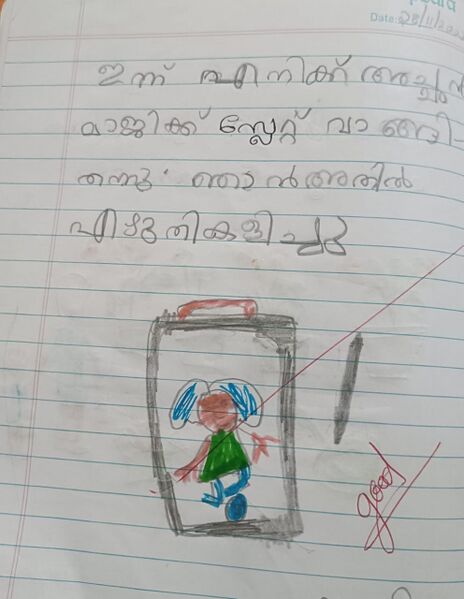 Date: 28/11/202
ഇന്ന് എനിക്ക് അച്ഛൻ
മാജിക്ക് സ്ലേറ്റ് വാങ്ങി
തന്നു ഞാൻ അതിൽ
എഴുതികളിച്ചു
good